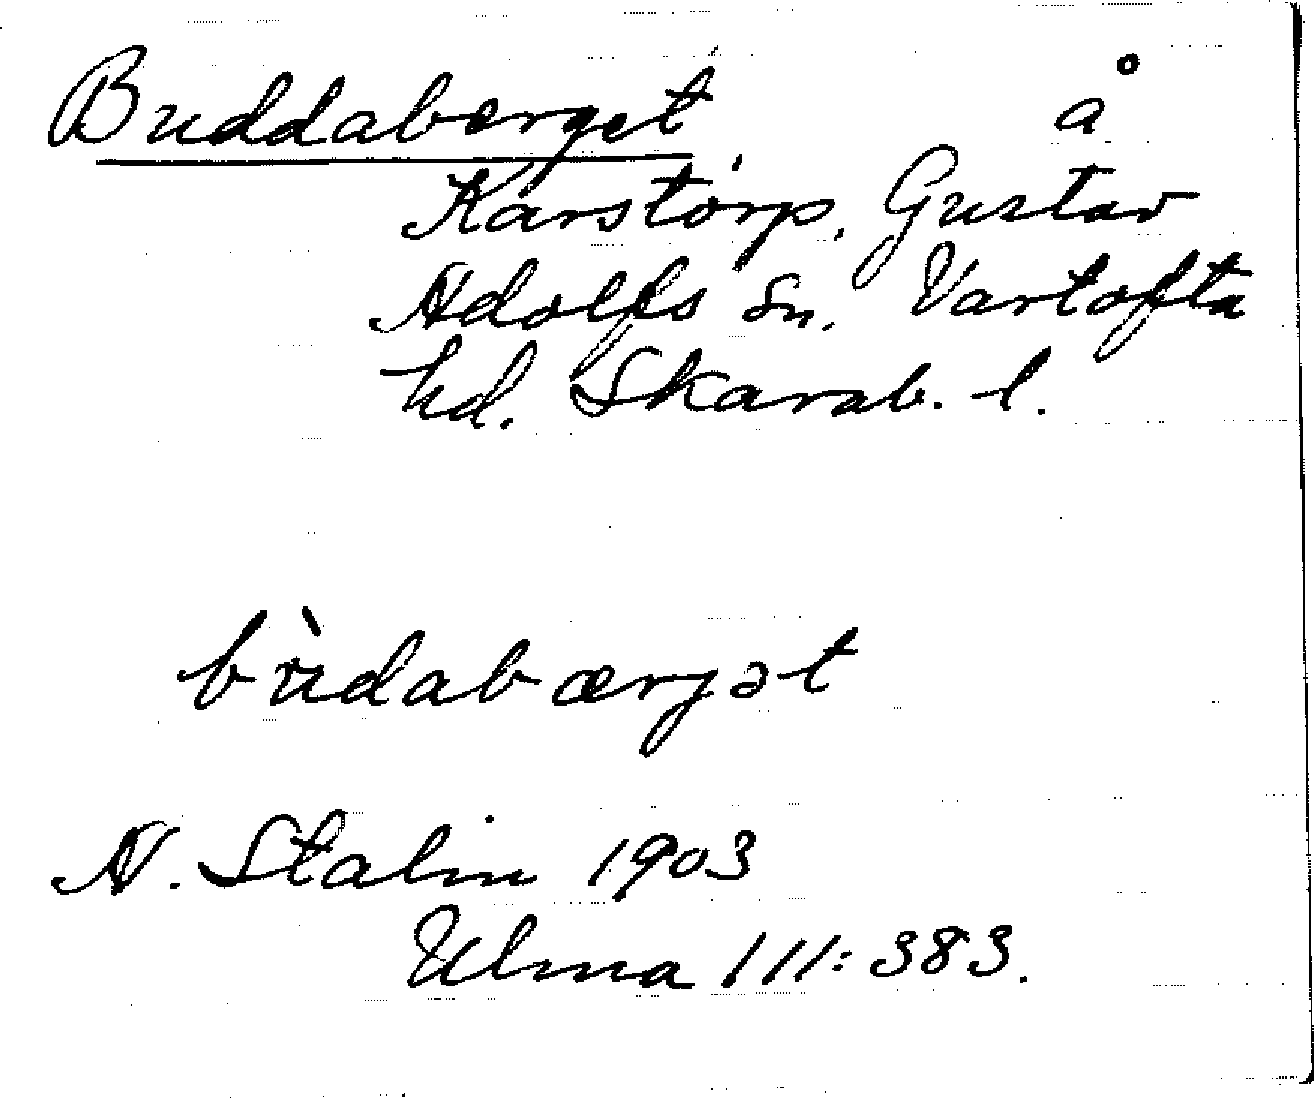 Buddaberget å
Kårstorp, Gustav
Adolfs sn, Vartofta
hd. Skarab. l.
bùdabærjət
N. Stalin 1903
Ulma 111:383.